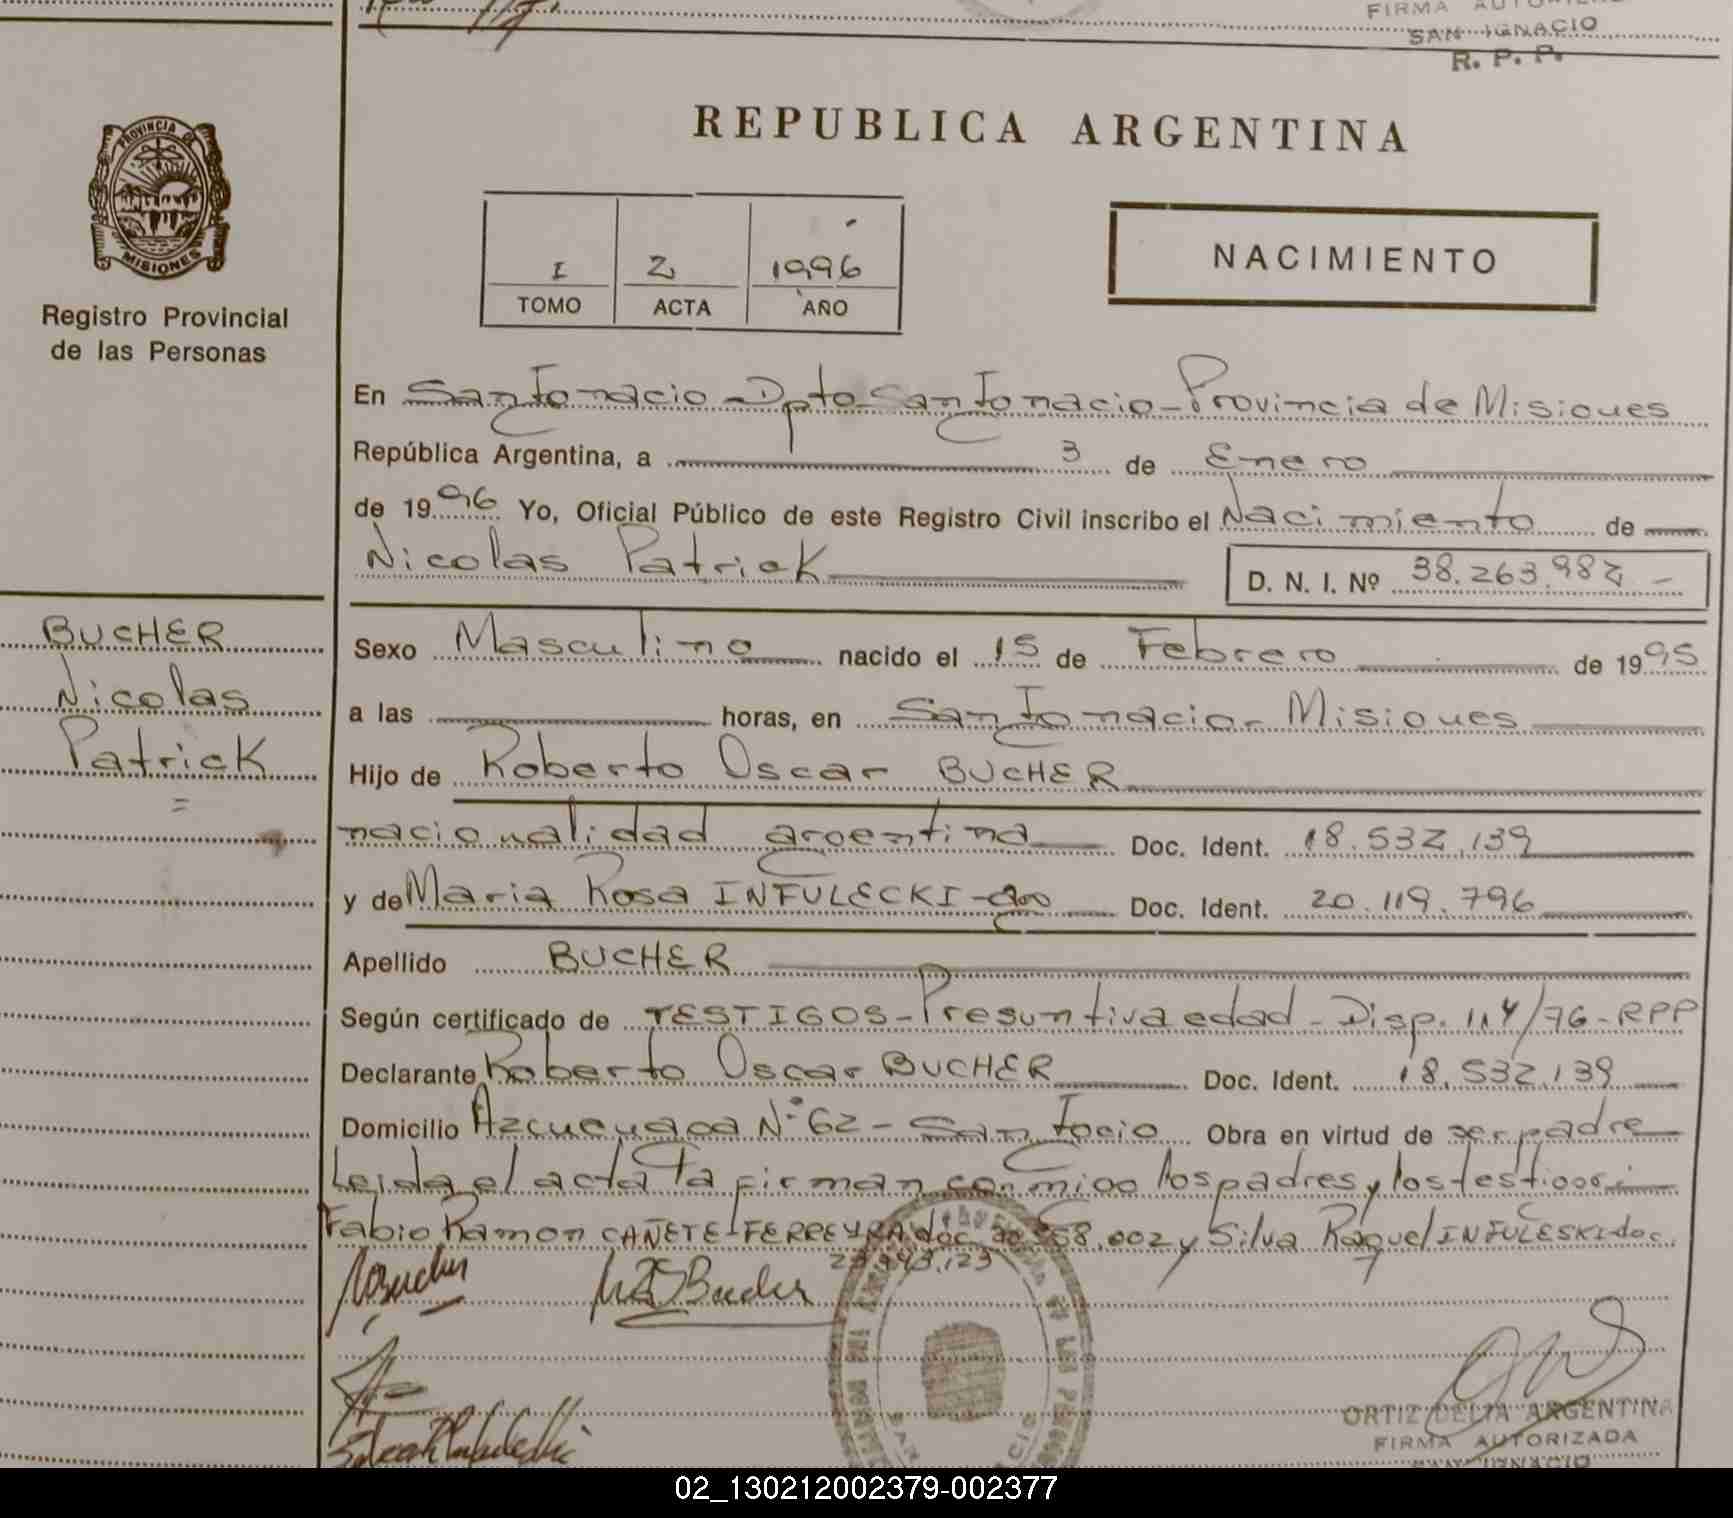 FIRMA AUTORIZADA
SAN IGNACIO
R. P. P.
PROVINCIA DE
MISIONES
Registro Provincial
de las Personas
REPUBLICA ARGENTINA
I 2 1996
TOMO ACTA AÑO
NACIMIENTO
En San Ignacio - Dpto San Ignacio - Provincia de Misiones
República Argentina, a 3 de Enero
de 1996 Yo, Oficial Público de este Registro Civil inscribo el Nacimiento de
Nicolas Patrick D. N. I. Nº 38.263.982 -
BUCHER
Nicolas
Patrick
=
Sexo Masculino nacido el 15 de Febrero de 1995
a las horas, en San Ignacio - Misiones
Hijo de Roberto Oscar BUCHER
nacionalidad argentina Doc. Ident. 18.532.139
y de Maria Rosa INFULECKI - Doc. Ident. 20.119.796
Apellido BUCHER
Según certificado de TESTIGOS - Presuntiva edad - Disp. 114/76 - RPP
Declarante Roberto Oscar BUCHER Doc. Ident. 18.532.139
Domicilio Azcuenaga Nº 62 - San Igcio Obra en virtud de ser padre
Leida el acta la firman conmigo los padres y los testigos:
Fabio Ramon CAÑETE - FERREYRA doc. 58.002 y Silva Raquel INFULESKI doc.
123
ORTIZ DELIA ARGENTINA
FIRMA AUTORIZADA
SAN IGNACIO
02_130212002379-002377